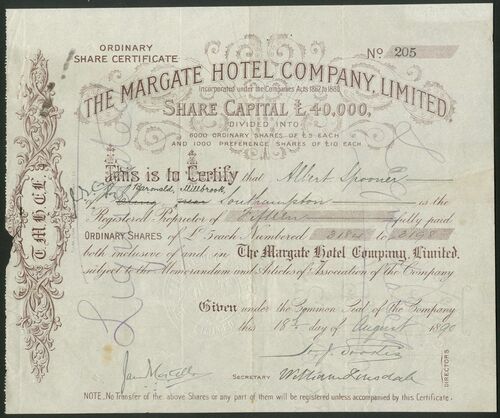 ORDINARY
SHARE CERTIFICATE
No 205
THE MARGATE HOTEL COMPANY, LIMITED.
Incorporated under the Companies Acts 1862 to 1880
SHARE CAPITAL £40,000,
DIVIDED INTO
6000 ORDINARY SHARES OF £5 EACH
AND 1000 PREFERENCE SHARES OF £10 EACH
This is to Certify that Albert Spooner
Millbrook
of near Southampton is the
Registered Proprietor of Fifteen fully paid
ORDINARY SHARES of £5 each Numbered 2184 to 2198
both inclusive of and in The Margate Hotel Company, Limited.
subject to the Memorandum and Articles of Association of the Company
Given under the Common Seal of the Company
this 18th day of August 1890
DIRECTORS
SECRETARY
NOTE, No Transfer of the above Shares or any part of them will be registered unless accompanied by this Certificate.
TMHCL